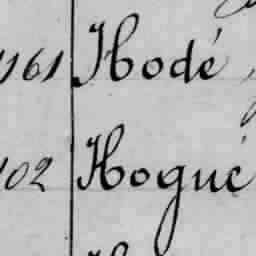 161 Hodé
102 Hogué